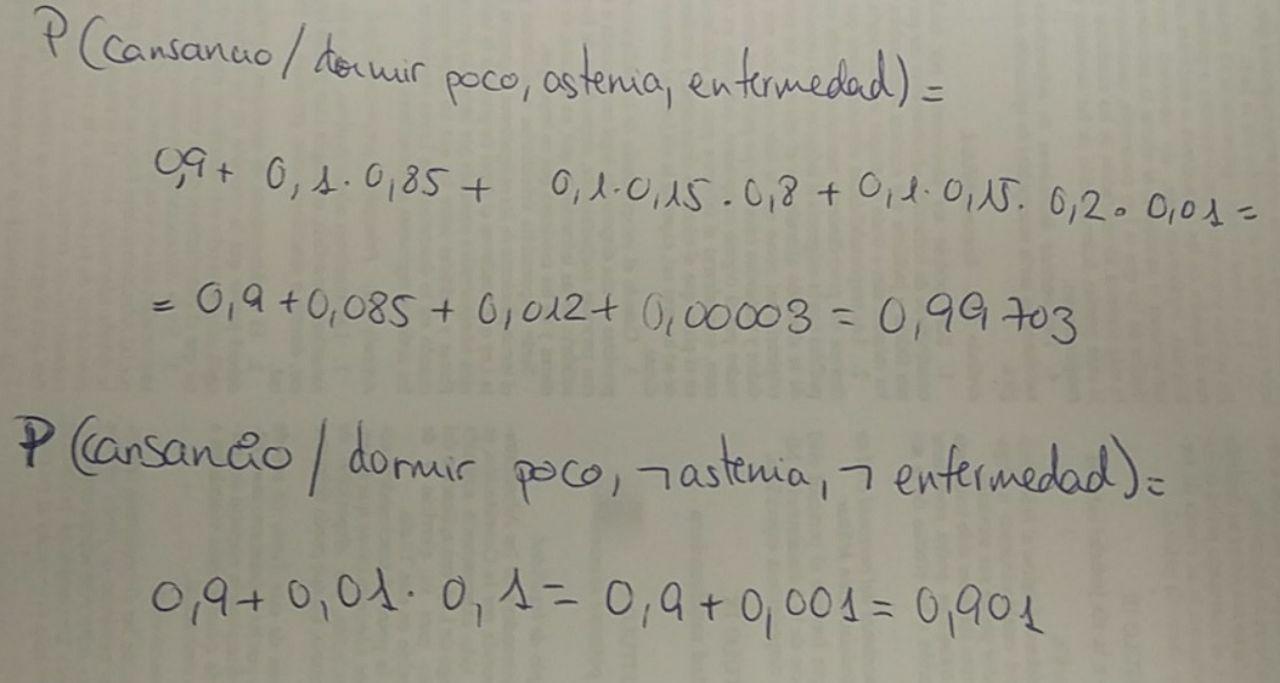 P(cansancio/dormir poco, astenia, enfermedad) =
0,9 + 0,1 · 0,85 + 0,1 · 0,15 · 0,8 + 0,1 · 0,15 · 0,2 · 0,01 =
= 0,9 + 0,085 + 0,012 + 0,00003 = 0,99703
P(cansancio / dormir poco, ¬astenia, ¬ enfermedad) =
0,9 + 0,01 · 0,1 = 0,9 + 0,001 = 0,901